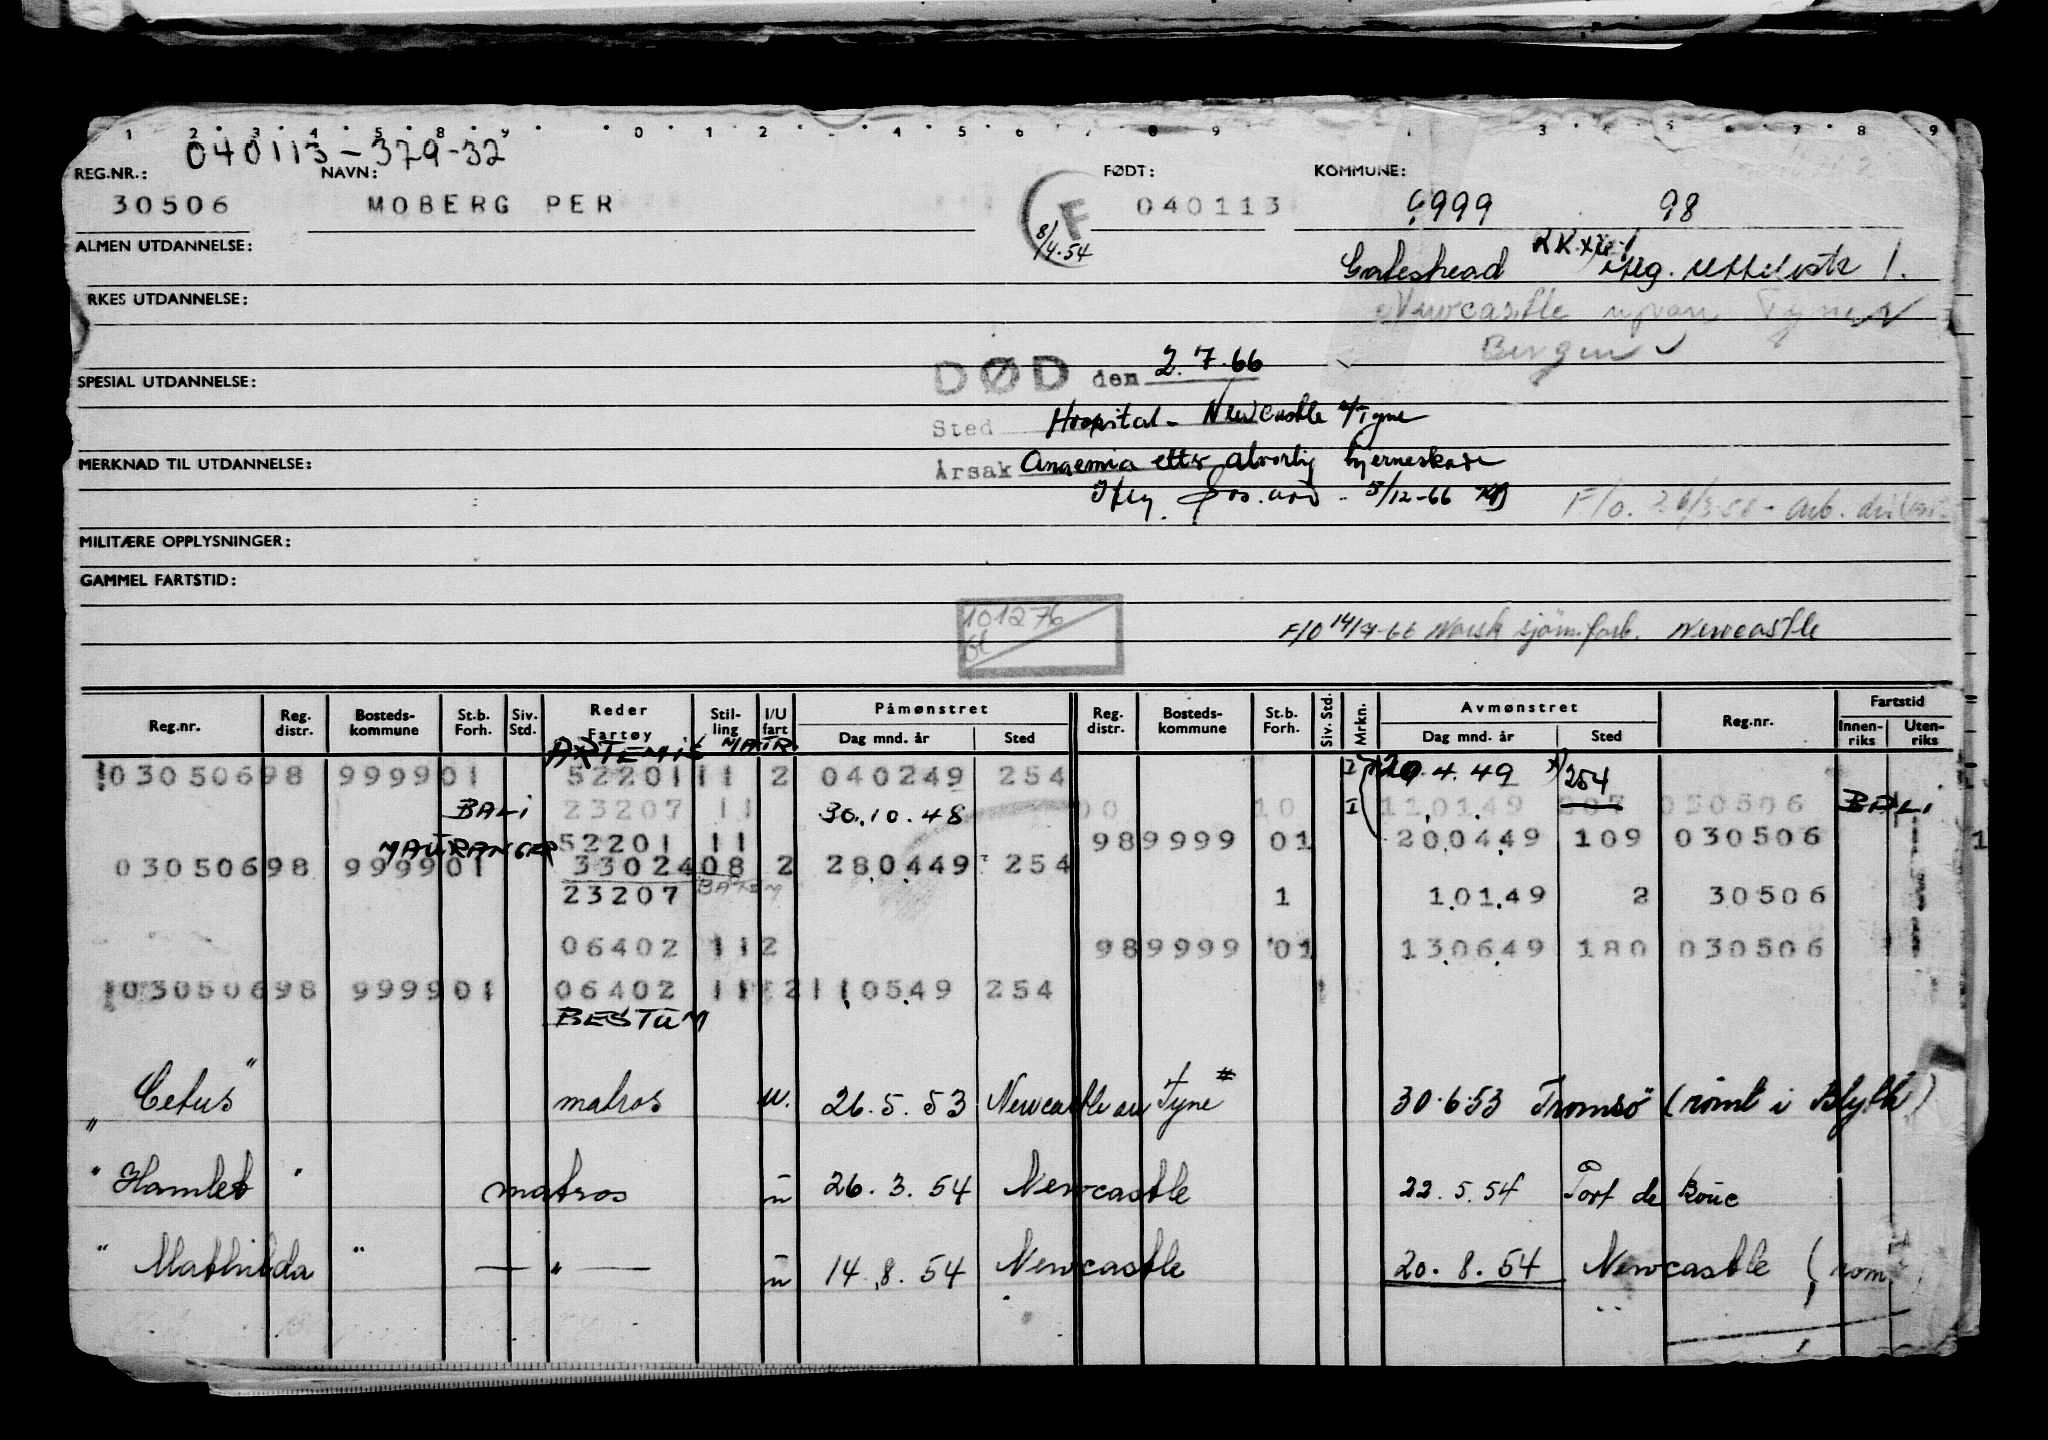 040113-379-32
REG.NR.: NAVN: FØDT: KOMMUNE:
30506 MOBERG PER F 040113 9999 98
8/4.54
ALMEN UTDANNELSE: Gateshead
RKES UTDANNELSE: Newcastle upon Tyne
Bergen
DØD den 2.7.66
SPESIAL UTDANNELSE:
Sted Hospital - Newcastle u/Tyne
MERKNAD TIL UTDANNELSE:
Årsak Anaemia etter alvorlig hjerneskade
5/12-66 F/o.
MILITÆRE OPPLYSNINGER:
GAMMEL FARTSTID:
101276
F/O 14/7-66 Norsk sjøm.forb. Newcastle
Reg.nr. Reg. distr. Bosteds-kommune St.b. Forh. Siv. Std. Reder Fartøy Stil-ling I/U fart Påmønstret Dag mnd. år Sted Reg. distr. Bosteds-kommune St.b. Forh. Siv. Std. Mrkn. Avmønstret Dag mnd. år Sted Reg.nr. Fartstid Innen-riks Uten-riks
ARTEMIS MATR
030506 98 9999 01 52201 11 2 040249 254 20.4.49 254
BALI 23207 11 30.10.48 00 10 110149 207 030506 BALI
52201 11 98 9999 01 200449 109 030506 1
MAURANGER
030506 98 9999 01 33024 08 2 280449 254
23207 1 10149 2 30506
06402 11 2 98 9999 01 130649 180 030506
030506 98 9999 01 06402 11 2 110549 254
BESTUM
"Cetus" matros u. 26.5.53 Newcastle on Tyne 30.6.53 Tromsö (römt i Blyth)
"Hamlet" matros u 26.3.54 Newcastle 22.5.54 Port de Bouc
"Mathilda" — " — u 14.8.54 Newcastle 20.8.54 Newcastle